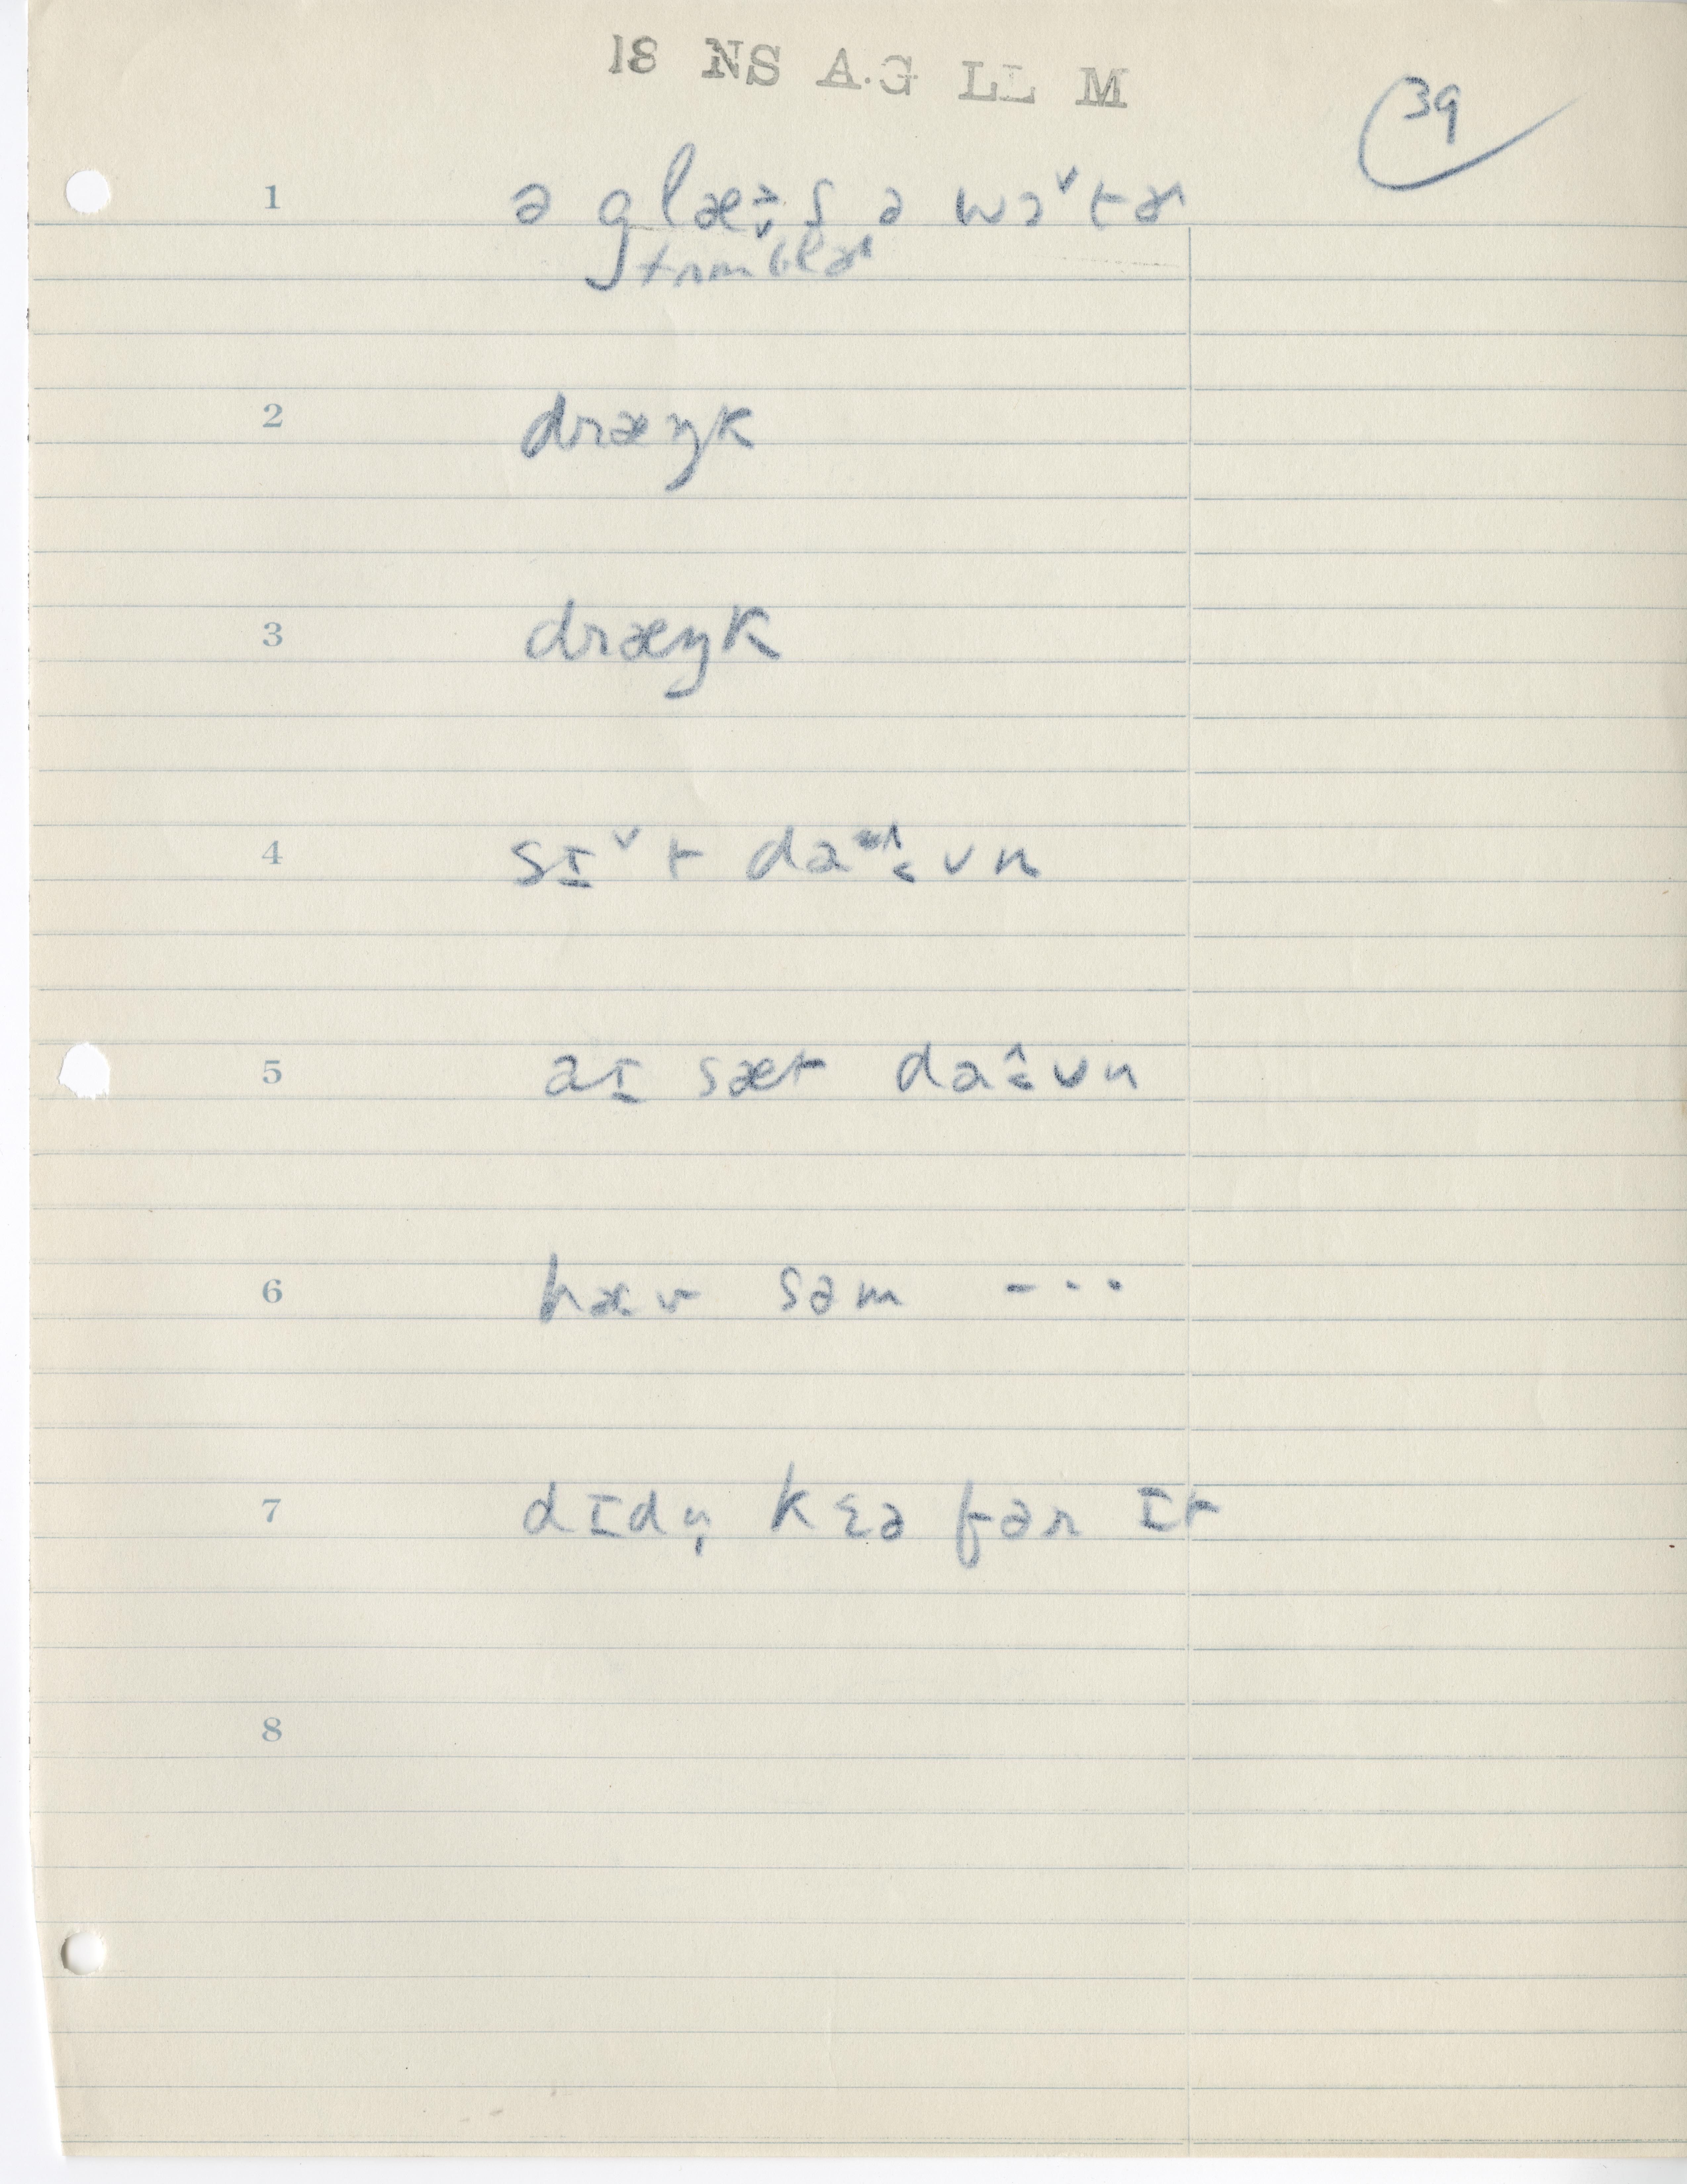 18 NS A.G LL M
39
1 ə glæ˃˅s ə wɔ˅tɚ
tʌmblɚ
2 dræŋk
3 dræŋk
4 sɪ˅t da˄˂ʊn
5 aɪ sæt da˄˂ʊn
6 hæv səm - - - -
7 dɪdn̩ kɛə fər ɪt
8